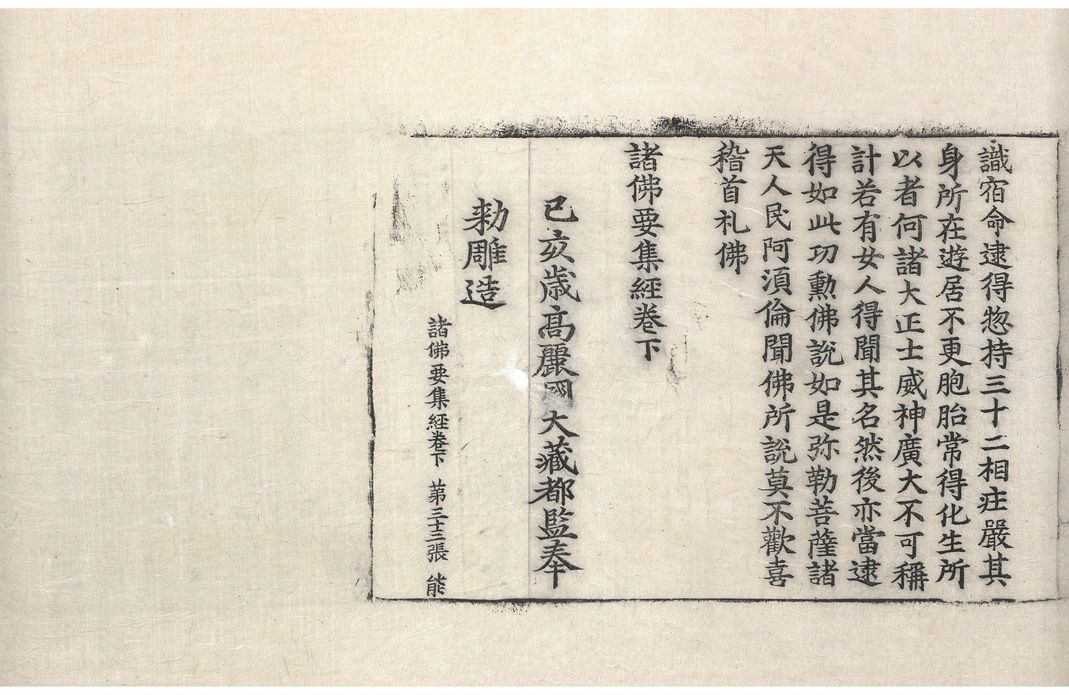 識宿命逮得惣持三十二相庄嚴其
身所在遊居不更胞胎常得化生所
以者何諸大正士威神廣大不可稱
計若有女人得聞其名然後亦當逮
得如此功勳佛說如是弥勒菩薩諸
天人民阿須倫聞佛所說莫不歡喜
稽首礼佛
諸佛要集經卷下
己亥歲高麗國大藏都監奉
勅雕造
諸佛要集經卷下 苐三十三張 能